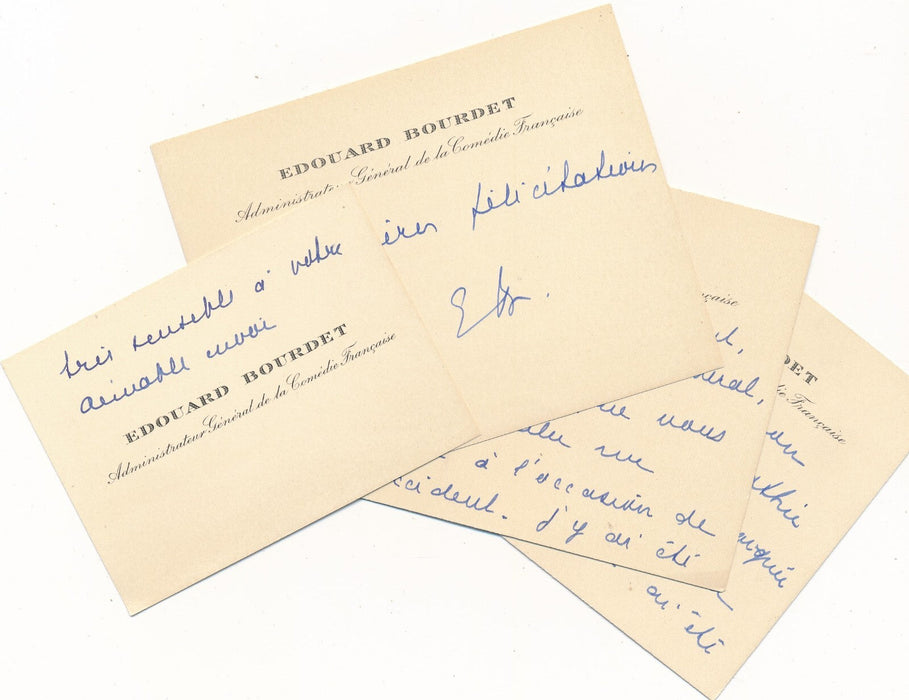 EDOUARD BOURDET
Administrateur Général de la Comédie Française
ères félicitations
très sensible à votre
aimable envoi
EDOUARD BOURDET
Administrateur Général de la Comédie Française
çaise
t,
ral,
vous
du me
à l'occasion de
ccident. j'y ai été
DET
die Française
on
athie
ai été